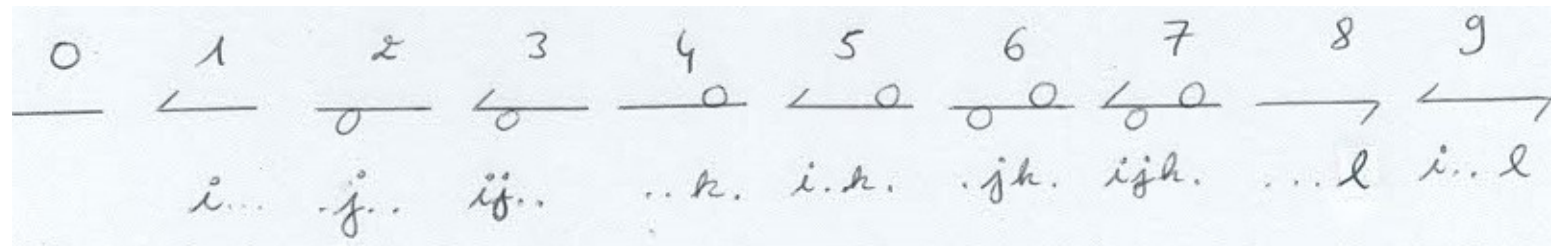 0 1 2 3 4 5 6 7 8 9
i... .j.. ij.. ..k. i.k. .jk. ijk. ...l i..l